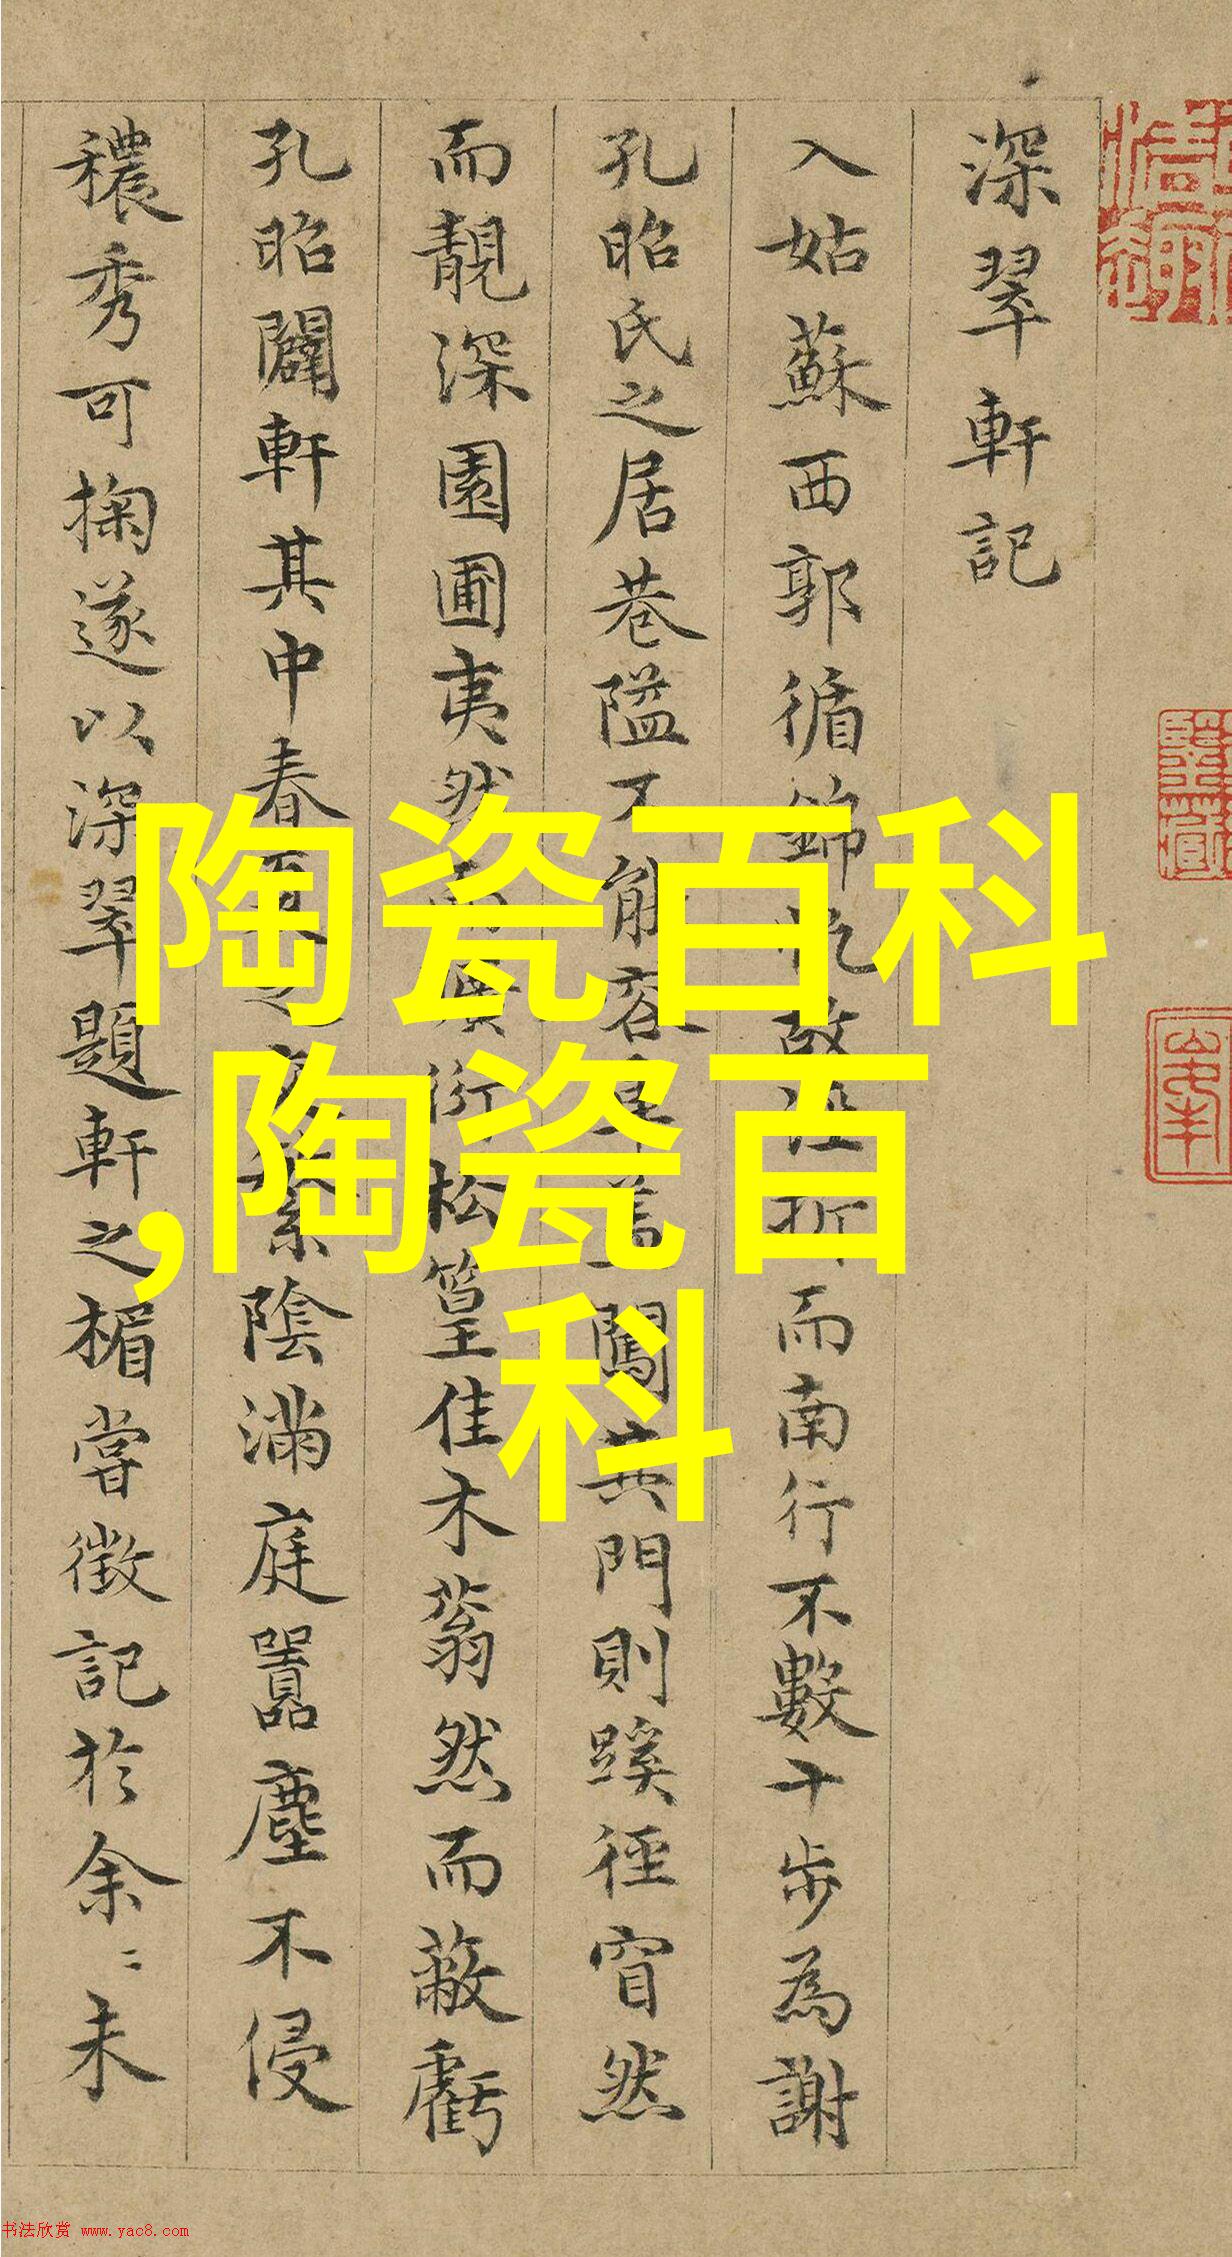 深翠軒記
入姑蘇西郭循錦帆而南行不數十步為謝
孔昭氏之居巷隘不能容車蓋闖其門則蹊徑窅然
而靚深園圃夷然衍松篁佳木蓊然而蔽虧
孔昭闢軒其中春夏之交繁陰滿庭囂塵不侵
穠秀可掬遂以深翠題軒之楣嘗徵記於余〻未
陶瓷百科
,陶瓷百
科
书法欣赏 www.yac8.com